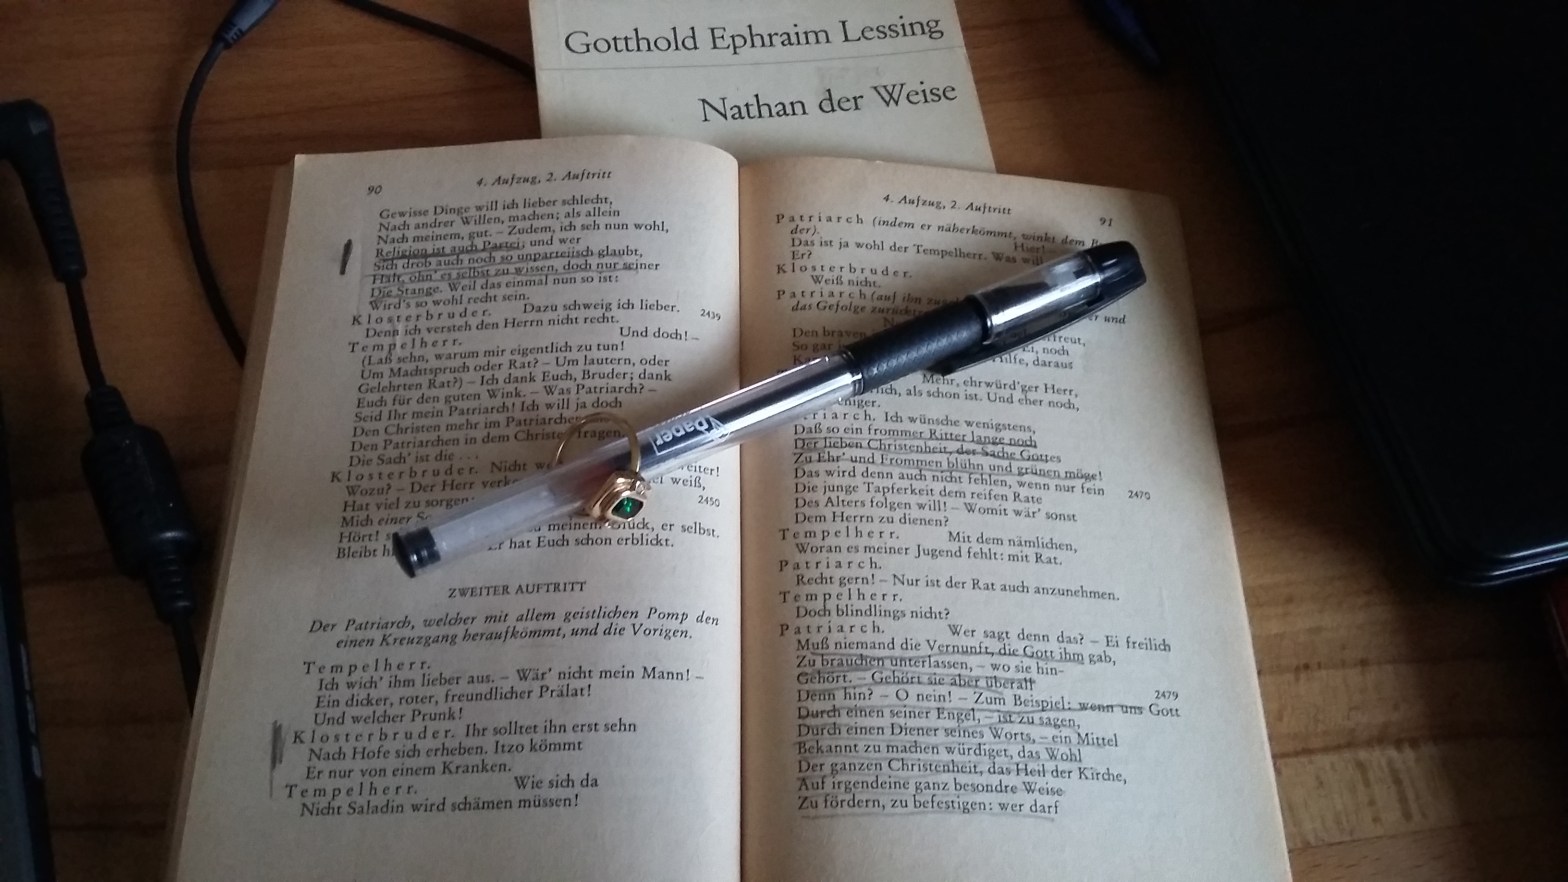 Gotthold Ephraim Lessing
Nathan der Weise
90
4. Aufzug, 2. Auftritt
Gewisse Dinge will ich lieber schlecht,
Nach andrer Willen, machen; als allein
Nach meinem, gut. – Zudem, ich seh nun wohl,
Religion ist auch Partei; und wer
Sich drob auch noch so unparteiisch glaubt,
Hält, ohn' es selbst zu wissen, doch nur seiner
Die Stange. Weil das einmal nun so ist:
Wird's so wohl recht sein.
Klosterbruder. Dazu schweig ich lieber. 2439
Denn ich versteh den Herrn nicht recht.
Tempelherr. Und doch! –
(Laß sehn, warum mir eigentlich zu tun!
Um Machtspruch oder Rat? – Um lautern, oder
Gelehrten Rat?) – Ich dank Euch, Bruder; dank
Euch für den guten Wink. – Was Patriarch? –
Seid Ihr mein Patriarch! Ich will ja doch
Den Christen mehr im Patriarchen
Den Patriarchen in dem Christen fragen.
Die Sach' ist die ...
Klosterbruder. Nicht weiter!
Wozu? – Der Herr weiß,
Hat viel zu sorgen; 2450
Mich einer
Hört! meinem Glück, er selbst.
Bleibt Er hat Euch schon erblickt.
ZWEITER AUFTRITT
Der Patriarch, welcher mit allem geistlichen Pomp den
einen Kreuzgang heraufkömmt, und die Vorigen.
Tempelherr.
Ich wich' ihm lieber aus. – Wär' nicht mein Mann! –
Ein dicker, roter, freundlicher Prälat!
Und welcher Prunk!
Klosterbruder. Ihr solltet ihn erst sehn
Nach Hofe sich erheben. Itzo kömmt
Er nur von einem Kranken.
Tempelherr. Wie sich da
Nicht Saladin wird schämen müssen!
4. Aufzug, 2. Auftritt
91
Patriarch (indem er näherkömmt, winkt dem
der). Hier!
Das ist ja wohl der Tempelherr. Was will
Er?
Klosterbruder.
Weiß nicht.
Patriarch (auf ihn und
das Gefolge
Den braven
So gar Ei, noch
Hilfe, daraus
Mehr, ehrwürd'ger Herr,
als schon ist. Und eher noch,
Patriarch. Ich wünsche wenigstens,
Daß so ein frommer Ritter lange noch
Der lieben Christenheit, der Sache Gottes
Zu Ehr' und Frommen blühn und grünen möge!
Das wird denn auch nicht fehlen, wenn nur fein 2470
Die junge Tapferkeit dem reifen Rate
Des Alters folgen will! – Womit wär' sonst
Dem Herrn zu dienen?
Tempelherr. Mit dem nämlichen,
Woran es meiner Jugend fehlt: mit Rat.
Patriarch.
Recht gern! – Nur ist der Rat auch anzunehmen.
Tempelherr.
Doch blindlings nicht?
Patriarch. Wer sagt denn das? – Ei freilich
Muß niemand die Vernunft, die Gott ihm gab,
Zu brauchen unterlassen, – wo sie hin-
Gehört. – Gehört sie aber überall
Denn hin? – O nein! – Zum Beispiel: wenn uns Gott 2479
Durch einen seiner Engel, – ist zu sagen,
Durch einen Diener seines Worts, – ein Mittel
Bekannt zu machen würdiget, das Wohl
Der ganzen Christenheit, das Heil der Kirche,
Auf irgendeine ganz besondre Weise
Zu fördern, zu befestigen: wer darf